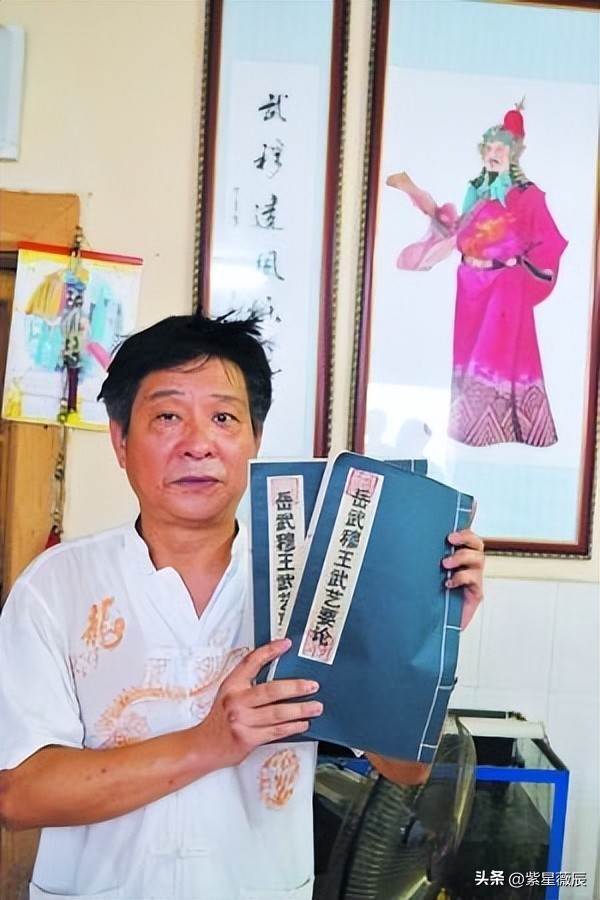 武穆遠風
岳武穆王武艺
岳武穆王武艺要论
龍
头条 @紫星薇辰